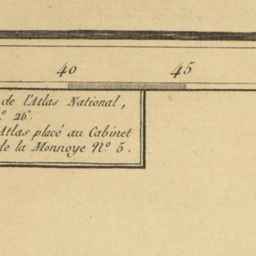 40 45
de l'Atlas National,
º 26
Atlas placé au Cabinet
de la Monnoye Nº 5.